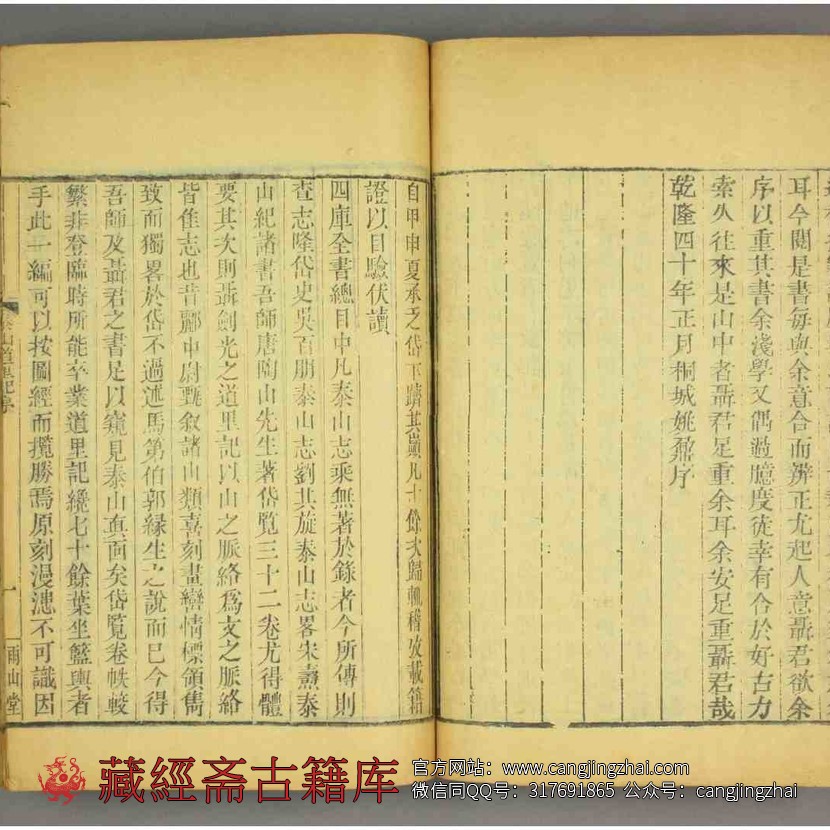 耳今閱是書每與余意合而辨正尤起人意聶君欲余
序以重其書余淺學又偶過臆度徒幸有合於好古力
索久往來是山中者聶君足重余耳余安足重聶君哉
乾隆四十年正月桐城姚鼐序
自甲申夏承乏岱下躋其巔凡十餘次歸輒稽攷載籍
證以目驗伏讀
四庫全書總目中凡泰山志乘無著於錄者今所傳則
查志隆岱史吳百朋泰山志劉其旋泰山志畧朱㷆泰
山紀諸書吾師唐陶山先生著岱覽三十二卷尤得體
要其次則聶劍光之道里記以山之脈絡爲文之脈絡
皆隹志也昔酈中尉甄敘諸山類喜刻畫巒情標領雋
致而獨畧於岱不過述馬第伯郭緣生之說而已今得
吾師及聶君之書足以窺見泰山真面矣岱覽卷帙較
繁非登臨時所能卒業道里記纔七十餘葉坐籃輿者
手此一編可以按圖經而攬勝焉原刻漫漶不可識因
泰山道里記序
一
雨山堂
藏經斋古籍库
官方网站：www.cangjingzhai.com
微信同QQ号：317691865 公众号：cangjingzhai